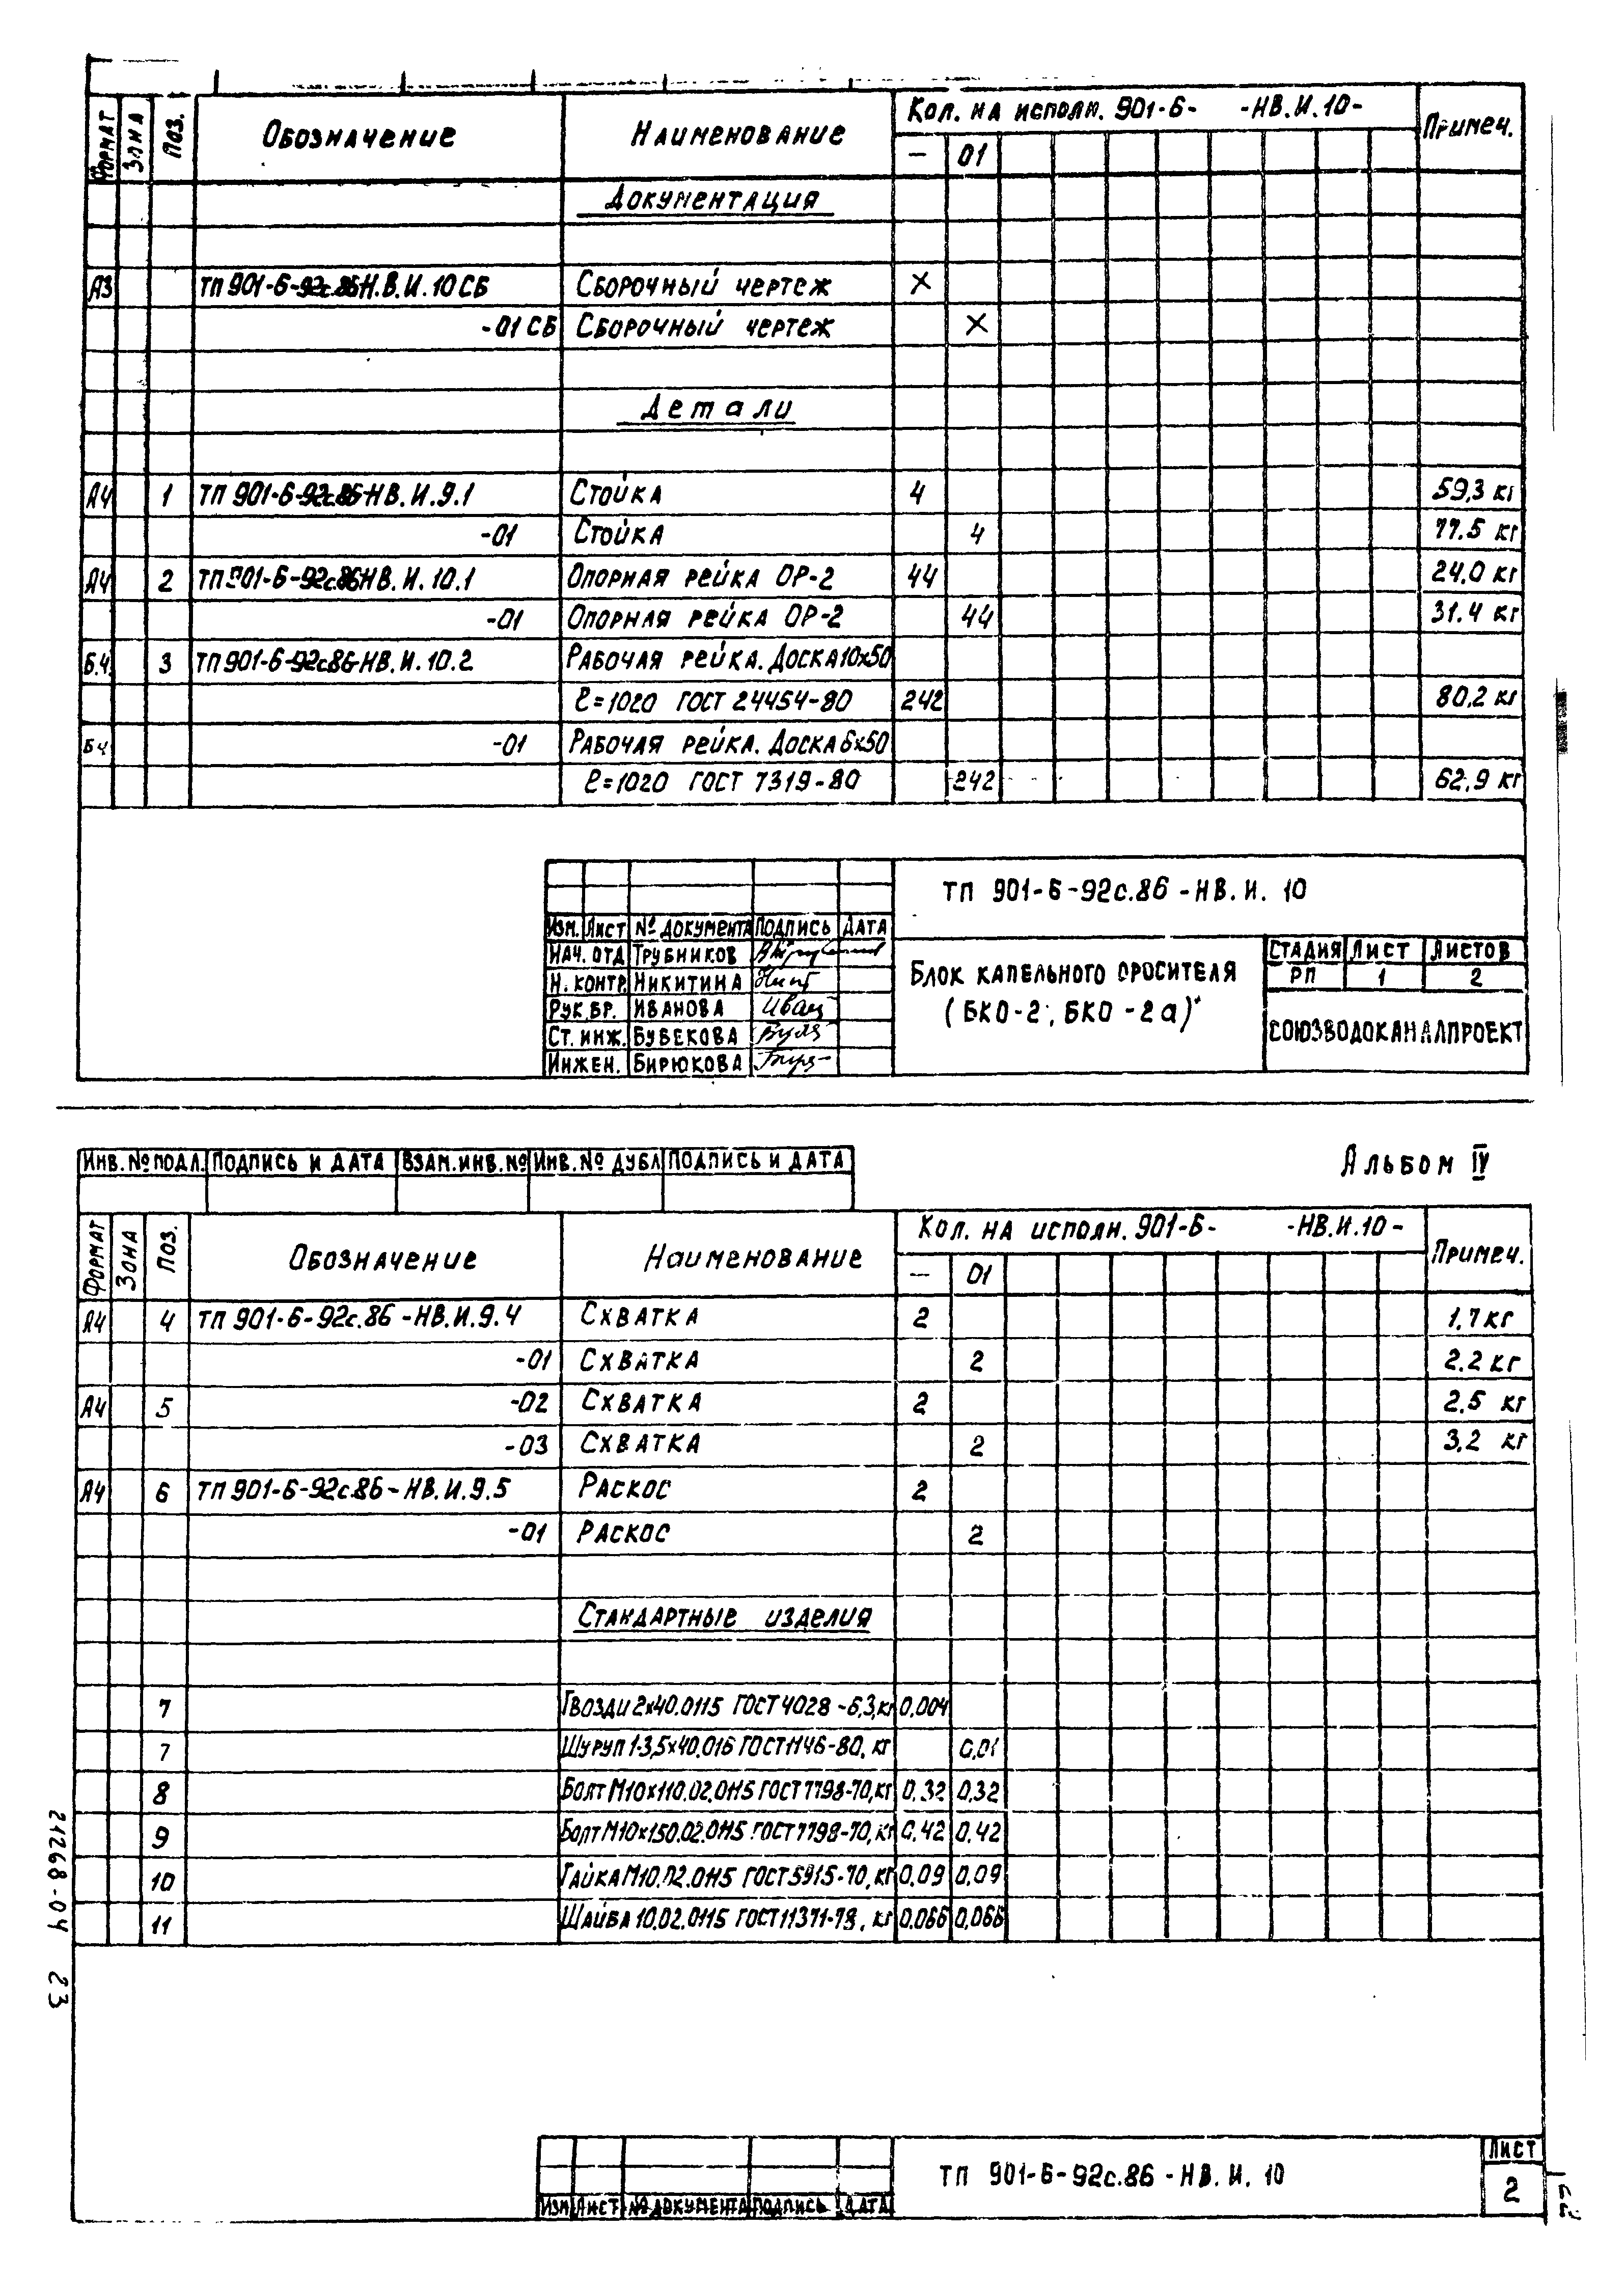 Формат Зона Поз. Обозначение Наименование Кол. на исполн. 901-6- -НВ.И.10- Примеч.
— 01
Документация
А3 ТП 901-6-92с.86Н.В.И.10СБ Сборочный чертеж X
-01СБ Сборочный чертеж X
Детали
А4 1 ТП 901-6-92с.86-НВ.И.9.1 Стойка 4 59,3 кг
-01 Стойка 4 77.5 кг
А4 2 ТП 901-6-92с.86НВ.И.10.1 Опорная рейка ОР-2 44 24,0 кг
-01 Опорная рейка ОР-2 44 31.4 кг
Б.4. 3 ТП 901-6-92с86-НВ.И.10.2 Рабочая рейка. Доска 10х50
ℓ=1020 ГОСТ 24454-80 242 80,2 кг
Б4 -01 Рабочая рейка. Доска 6х50
ℓ=1020 ГОСТ 7319-80 242 62,9 кг
ТП 901-6-92с.86-НВ.И. 10
Изм. Лист № документа Подпись Дата
Нач. отд Трубников
Н. контр. Никитина
Рук. бр. Иванова
Ст. инж. Бубекова
Инжен. Бирюкова
Блок капельного оросителя
(БКО-2, БКО-2а)
Стадия Лист Листов
РП 1 2
СОЮЗВОДОКАНАЛПРОЕКТ
Инв. № подл. Подпись и дата Взам. инв. № Инв. № дубл Подпись и дата
Альбом IV
Формат Зона Поз. Обозначение Наименование Кол. на исполн. 901-6- -НВ.И.10- Примеч.
— 01
А4 4 ТП 901-6-92с.86-НВ.И.9.4 Схватка 2 1,7 кг
-01 Схватка 2 2.2 кг
А4 5 -02 Схватка 2 2,5 кг
-03 Схватка 2 3,2 кг
А4 6 ТП 901-6-92с.86-НВ.И.9.5 Раскос 2
-01 Раскос 2
Стандартные изделия
7 Гвозди 2х40.0115 ГОСТ 4028-63, кг 0,004
7 Шуруп 1-3,5х40.016 ГОСТ 1146-80, кг 0,01
8 Болт М10х110.02.0115 ГОСТ 7798-70, кг 0,32 0,32
9 Болт М10х150.02.0115 ГОСТ 7798-70, кг 0,42 0,42
10 Гайка М10.02.0115 ГОСТ 5915-70, кг 0,09 0,09
11 Шайба 10.02.0115 ГОСТ 11371-78, кг 0,066 0,066
21268-04 23
Изм Лист № документа Подпись Дата
ТП 901-6-92с.86-НВ.И. 10
Лист
2